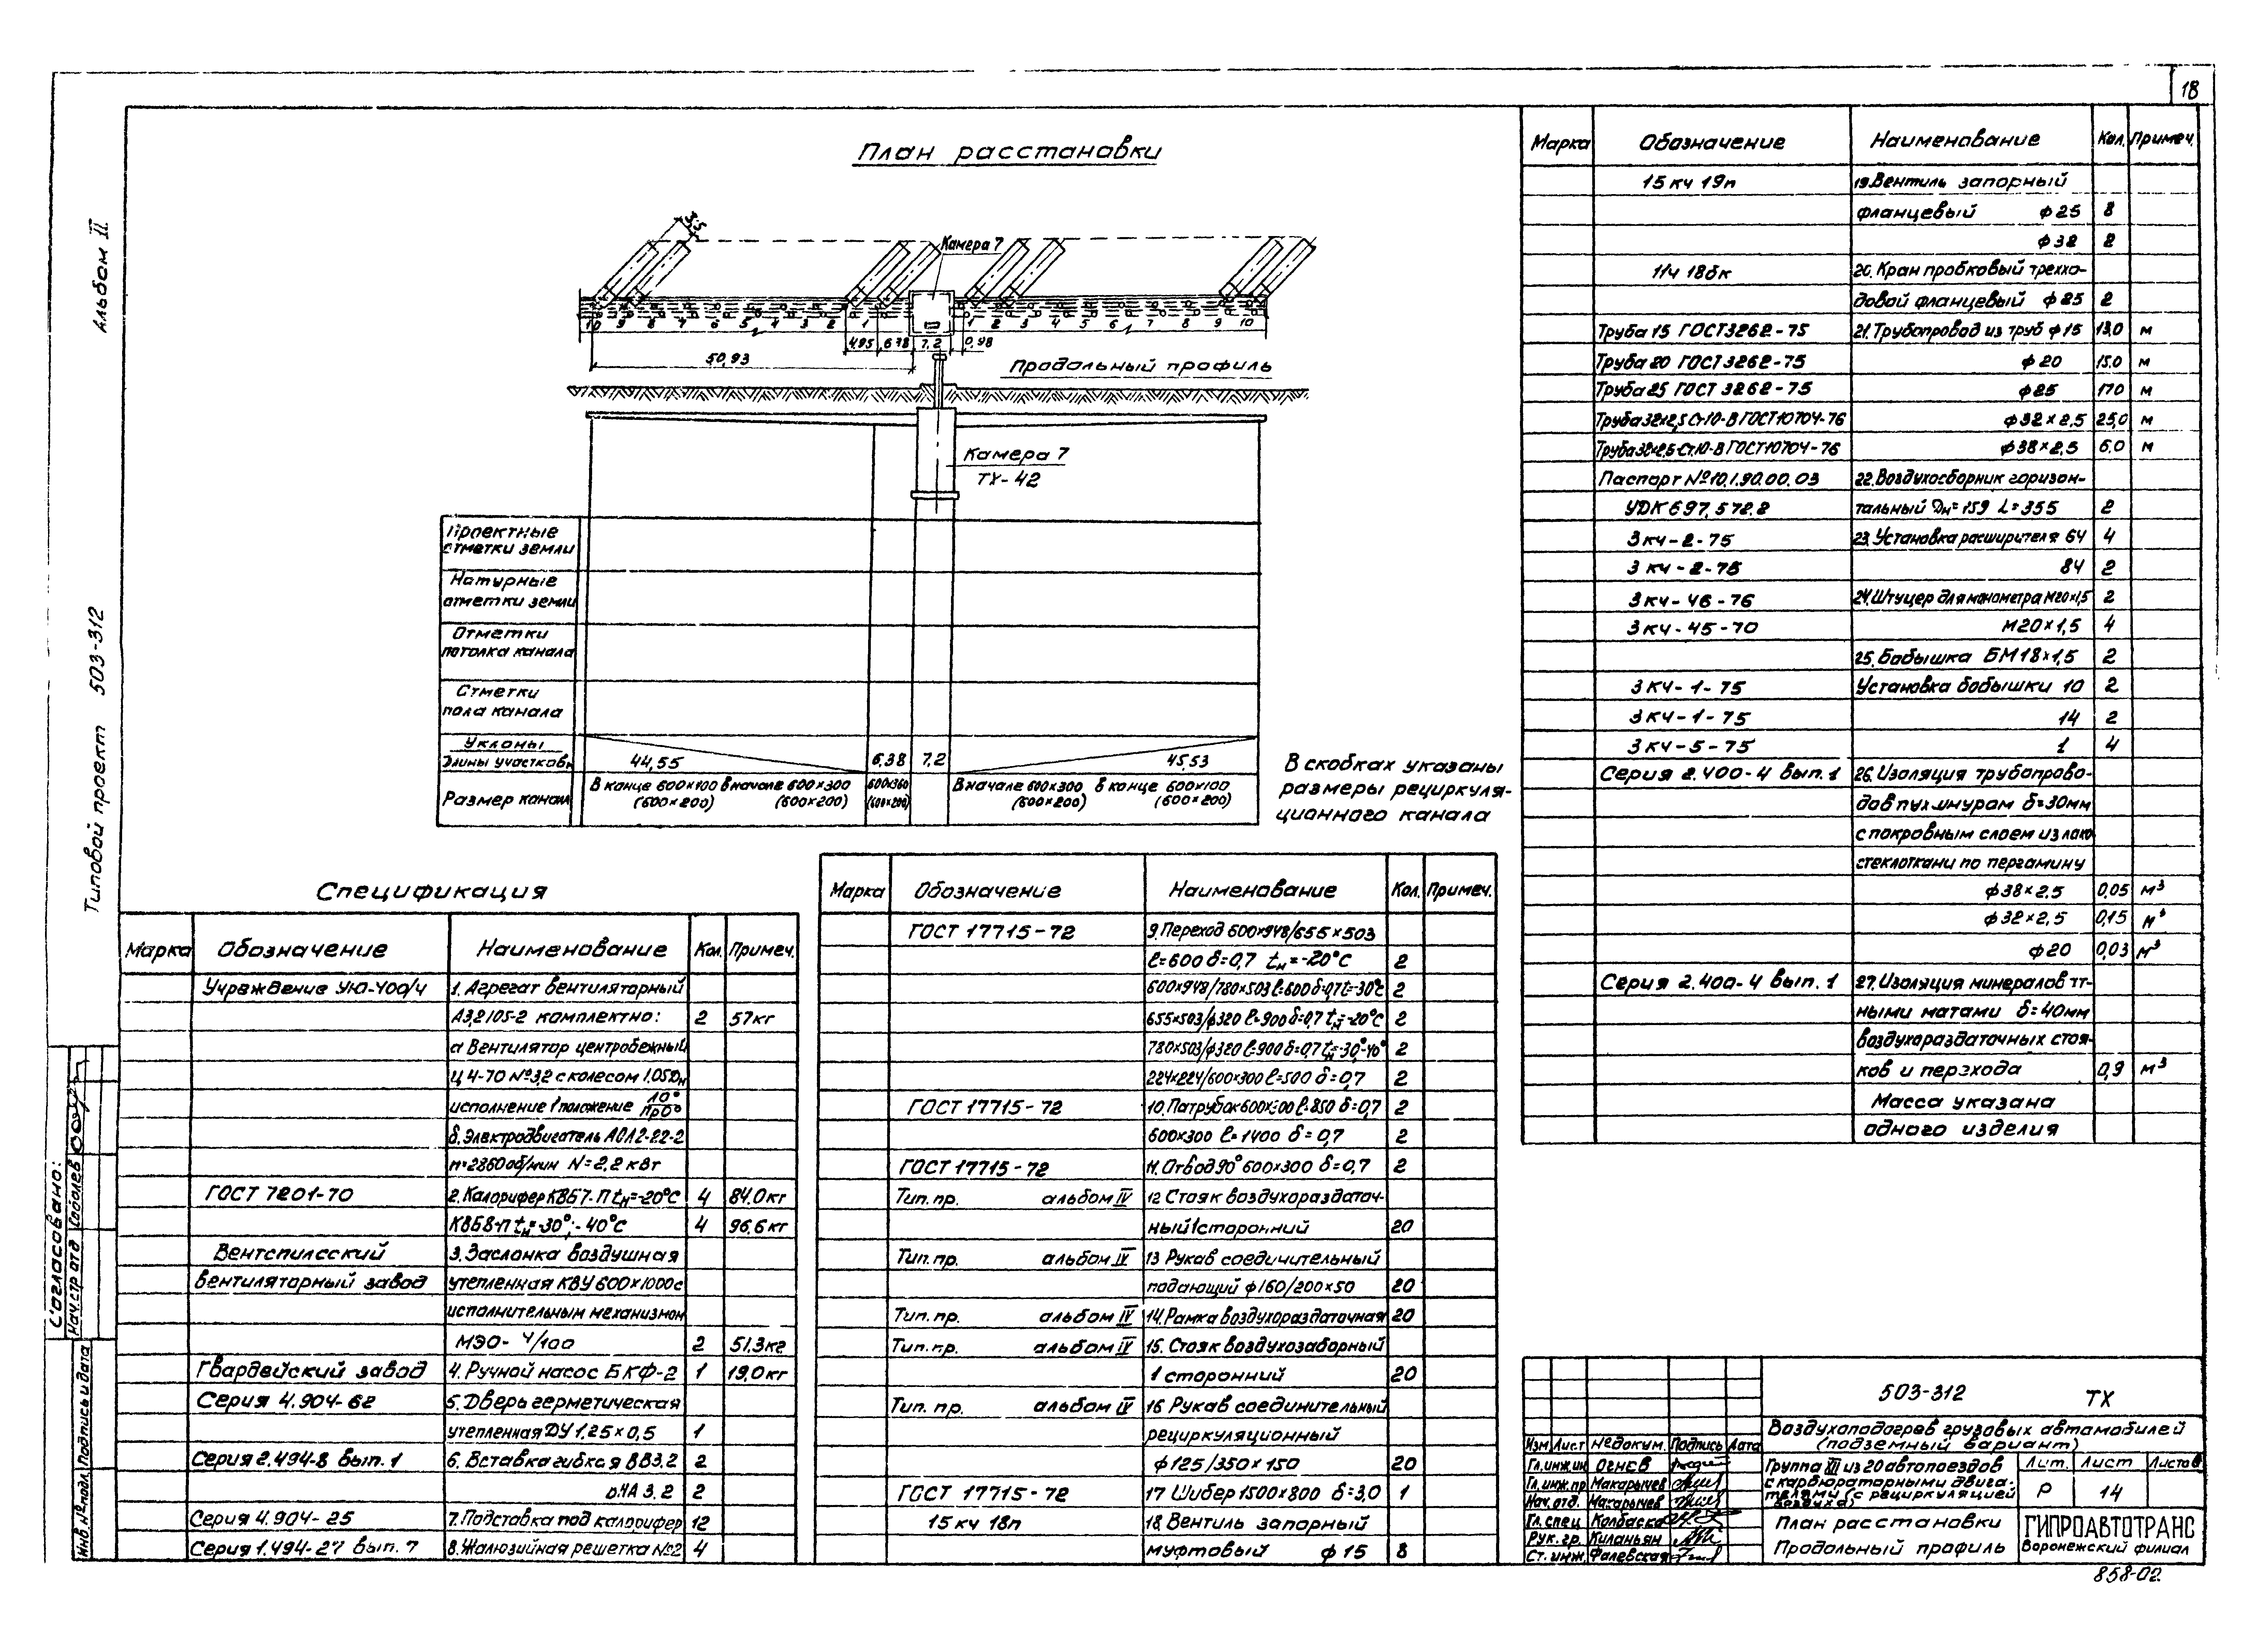 18
Альбом II
Типовой проект 503-312
План расстановки
3,5
Камера 7
10 9 8 7 6 5 4 3 2 1
1 2 3 4 5 6 7 8 9 10
4,95 6,78 7,2 0,98
50,93
Продольный профиль
Камера 7
ТХ-42
Проектные
отметки земли
Натурные
отметки земли
Отметки
потолка канала
Отметки
пола канала
Уклоны
Длины участков
44,55 6,38 7,2 45,53
Размер канала
В конце 600×100 Вначале 600×300
(600×200) (600×200)
600×360
(600×200)
Вначале 600×300 в конце 600×100
(600×200) (600×200)
В скобках указаны
размеры рециркуля-
ционного канала
Спецификация
Марка Обозначение Наименование Кол. Примеч.
Учреждение УЮ-400/4 1. Агрегат вентиляторный
А3,2105-2 комплектно: 2 57кг
а Вентилятор центробежный
Ц4-70 №3,2 с колесом 1,05Dн
исполнение 1 положение Л0°
Пр0°
б. Электродвигатель АОЛ2-22-2
n=2860об/мин N=2,2 кВт
ГОСТ 7201-70 2. Калорифер КВБ7-П tн=-20°С 4 84.0кг
КВБ8-п tн=-30°;-40°С 4 96.6кг
Вентспилсский 3. Заслонка воздушная
вентиляторный завод утепленная КВУ600×1000с
исполнительным механизмом
МЭО-4/100 2 51.3кг
Гвардейский завод 4. Ручной насос БКФ-2 1 19,0кг
Серия 4.904-62 5. Дверь герметическая
утепленная ДУ1.25×0,5 1
Серия 2.494-8 вып. 1 6. Вставка гибкая ВВ3.2 2
3.2 2
Серия 4.904-25 7. Подставка под калорифер 12
Серия 1.494-27 вып. 7 8. Жалюзийная решетка №2 4
Марка Обозначение Наименование Кол. Примеч.
ГОСТ 17715-72 9. Переход 600×948/655×503
ℓ=600 δ=0,7 tн=-20°С 2
600×948/780×503 ℓ=600 δ=0,7 t=-30°с 2
655×503/ф320 ℓ=900 δ=0,7 tн=-20°С 2
780×503/ф320 ℓ=900 δ=0,7 tн=-30°-40° 2
224×224/600×300 ℓ=500 δ=0,7 2
ГОСТ 17715-72 10. Патрубок 600×300 ℓ=850 δ=0,7 2
600×300 ℓ=1400 δ=0,7 2
ГОСТ 17715-72 11. Отвод 90° 600×300 δ=0,7 2
Тип. пр. альбом IV 12 Стояк воздухораздаточ-
ный 1сторонний 20
Тип. пр. альбом IV 13 Рукав соединительный
подающий ф160/200×50 20
Тип. пр. альбом IV 14. Рамка воздухораздаточная 20
Тип. пр. альбом IV 15. Стояк воздухозаборный
1 сторонний 20
Тип. пр. альбом IV 16 Рукав соединительный
рециркуляционный
ф125/350×150 20
ГОСТ 17715-72 17 Шибер 1500×800 δ=3,0 1
15 кч 18п 18. Вентиль запорный
муфтовый ф15 8
Марка Обозначение Наименование Кол. Примеч.
15 кч 19п 19. Вентиль запорный
фланцевый ф25 8
ф32 2
11ч 18бк 20. Кран пробковый треххо-
довой фланцевый ф25 2
Труба 15 ГОСТ3262-75 21. Трубопровод из труб ф15 13,0 м
Труба 20 ГОСТ3262-75 ф20 15.0 м
Труба 25 ГОСТ 3262-75 ф25 170 м
Труба32×2,5 Ст10-В ГОСТ10704-76 ф32×2,5 25,0 м
Труба38×2,5-Ст.10-В ГОСТ10704-76 ф38×2,5 6.0 м
Паспорт №10.1.90.00.03 22. Воздухосборник горизон-
УДК 697.572.2 тальный Dн=159 L=355 2
3 кч-2-75 23. Установка расширителя 64 4
3 кч-2-75 84 2
3 кч-46-76 24. Штуцер для манометра М20×1,5 2
3 кч-45-70 М20×1,5 4
25. Бобышка БМ18×1,5 2
3 кч-1-75 Установка бобышки 10 2
3 кч-1-75 14 2
3 кч-5-75 1 4
Серия 2.400-4 вып. 1 26. Изоляция трубопрово-
дов пух.шнуром δ=30мм
с покровным слоем из лако
стеклоткани по пергамину
ф38×2,5 0,05 м³
ф32×2,5 0,15 м³
ф20 0,03 м³
Серия 2.400-4 вып. 1 27. Изоляция минераловат-
ными матами δ=40мм
воздухораздаточных стоя-
ков и перехода 0,9 м³
Масса указана
одного изделия
Согласовано:
Нач.стр отд Соболев
Инв.№подл. Подпись и дата
503-312 ТХ
Воздухоподогрев грузовых автомобилей
(подземный вариант)
Изм Лист №докум. Подпись Дата
Гл.инж.ин Огнев
Гл.инж.пр Макарычев
Нач.отд. Макарычев
Гл.спец Колбаска
Рук.гр. Киланьян
Ст.инж. Фалевская
Группа III из 20 автопоездов
с карбюраторными двига-
телями (с рециркуляцией
воздуха)
Лит. Лист Листов
Р 14
План расстановки
Продольный профиль
ГИПРОАВТОТРАНС
Воронежский филиал
858-02